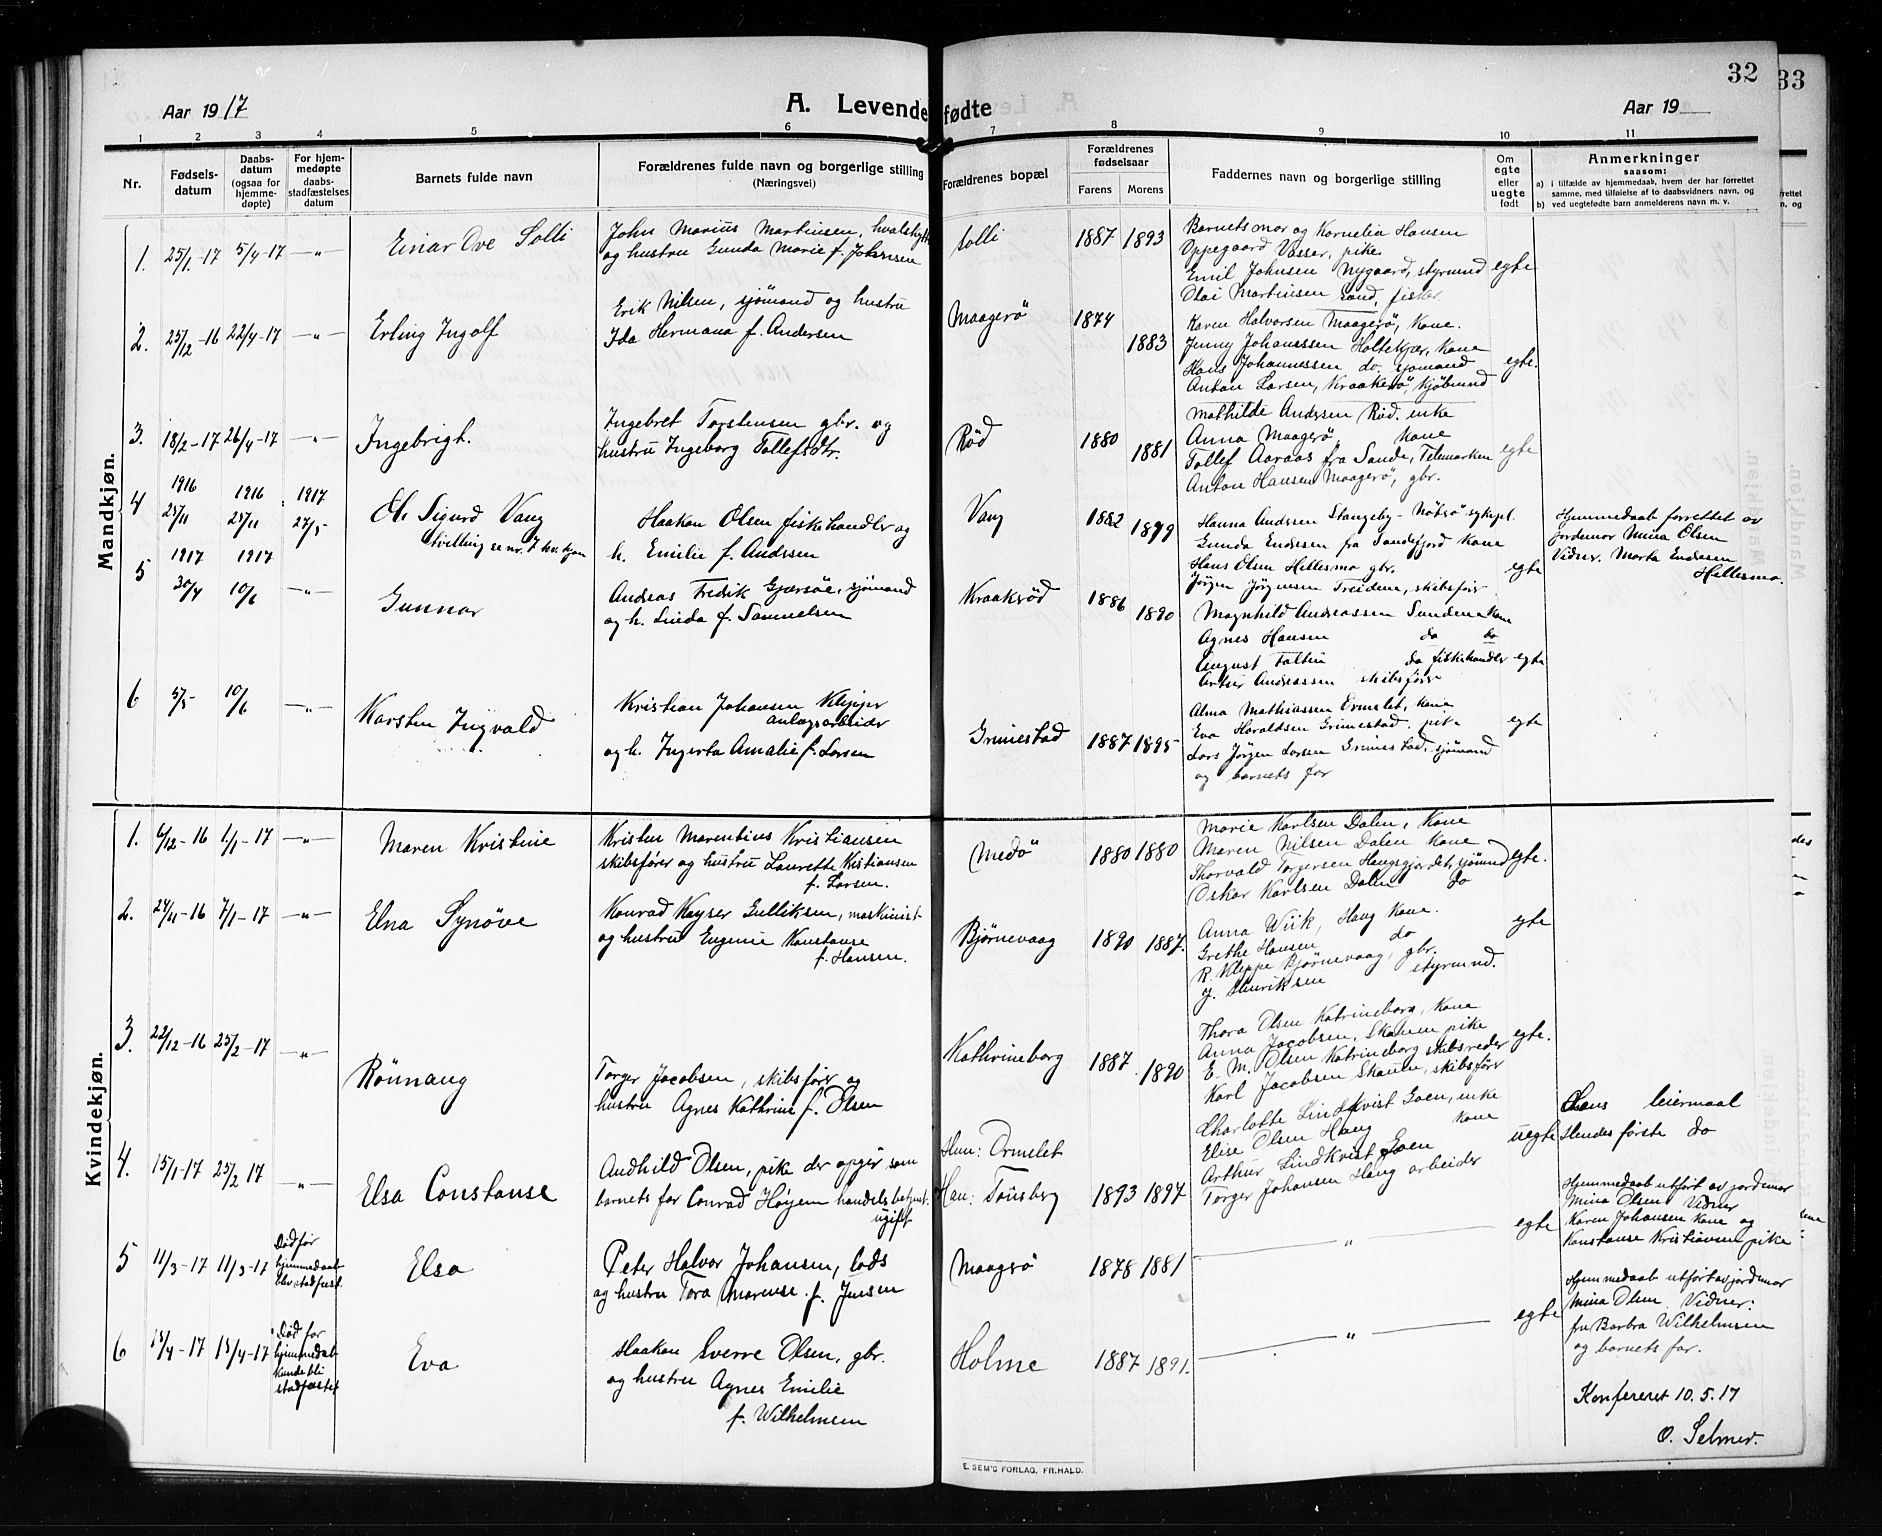 32
33
Aar 1917
A. Levende fødte
Aar 19
1 2 3 4 5 6 7 8 9 10 11
Nr.
Fødselsdatum
Daabsdatum (ogsaa for hjemmedøpte)
For hjemmedøpte daabsstadfæstelses datum
Barnets fulde navn
Forældrenes fulde navn og borgerlige stilling
(Næringsvei)
Forældrenes bopæl
Forældrenes fødselsaar
Farens Morens
Faddernes navn og borgerlige stilling
Om egte eller uegte født
Anmerkninger
saasom:
a) i tilfælde av hjemmedaab, hvem der har forrettet
samme, med tilføielse af to daabsvidners navn, og
b) ved uegtefødte barn anmelderens navn m. v.
Mandkjøn.
1. 25/1-17 5/4-17 -"- Einar Ove Solli
John Marius Martinsen, hvalskytt
og hustru Gunda Marie f. Johnsen
Solli 1887 1893
Barnets mor og Kornelia Hansen
Oppegaard Vasser, pike
Emil Johnsen Nygaard, styrmnd egte
Olai Martinsen Sand, fisker
2. 25/12-16 22/4-17 -"- Erling Ingolf
Erik Nilsen, sjømand og hustru
Ida Hermana f. Andersen
Maagerö 1874 1883
Karen Halvorsen Maagerö, Kone.
Jenny Johanssen Holtekjær, Kone
Hans Johannessen do. sjømand egte.
Anton Larsen, Kraakerö, kjöbmnd
3. 18/2-17 26/4-17 -"- Ingebrigt.
Ingebret Torstensen gbr. og
hustru Ingeborg Tollefsdtr.
Röd 1880 1881
Mathilde Andersen Röd. enke
Anna Maagerö, Kone
Tollef Aaraas fra Sande, Telemarken egte
Anton Hansen Maagerö, gbr.
4 1916 25/11 1916 25/11 1917 27/5 Ole Sigurd Vang
tvilling se nr. 7 kv. kjøn
Haakon Olsen fiskehandler og
h. Emilie f. Andersen
Vang 1882 1899
Hanna Andersen Stangeby - Nötterö sykepl.
Gunda Endresen fra Sandefjord Kone
Hans Olsen Hellesmo gbr. egte
Jörgen Jörgensen Treidene, skibsför
Hjemmedaab forrettet av
jordemor Mina Olsen
Vidner. Marta Endresen
Hellesmo.
5 1917 30/4 1917 10/6 -"- Gunnar
Andreas Fredrik Gjersöe, sjömand
og h. Linda f. Samuelsen
Kraakröd 1886 1890
Magnhild Andreassen Sundene Kone
Agnes Hansen do do
August Faltin do fiskehandler egte
Artur Andreassen skibsförer
6 5/5- 10/6 -"- Karsten Ingvald
Kristian Johansen Klepper
anlægsarbeider
og h. Ingerta Amalie f. Larsen
Grimestad 1887 1895
Alma Mathiassen Ormelet, Kone
Eva Haraldsen Grimestad. pike egte
Lars Jörgen Larsen Grimestad, sjömand
og barnets far
Kvindekjøn.
1. 6/12-16 1/1-17 -"- Maren Kristine
Kristen Marentius Kristiansen
skibsförer og hustru Laurette Kristiansen
f. Larsen.
Medö 1880 1880
Marie Karlsen Dalen, Kone
Maren Nilsen Dalen Kone
Thorvald Torgersen Haugsgjerdet sjömnd egte.
Oskar Karlsen Dalen do
2. 24/11-16 7/1-17 -"- Elna Synöve
Konrad Kayser Gulliksen, maskinist
og hustru Eugenie Konstanse
f. Hansen.
Bjørnevaag 1890 1887.
Anna Wiik, Haug Kone. egte
Grethe Hansen do
R. Kleppe Bjørnevaag, gbr.
J. Henriksen styrmnd.
3. 22/12-16 25/2-17 -"- Rönnaug
Torger Jacobsen, skibsförer og
hustru Agnes Kathrine f. Olsen
Kathrineborg 1887. 1890
Thora Olsen Katrineborg, Kone
Anna Jacobsen, Skauen pike
E. M. Olsen Katrineborg skibsreder egte.
Karl Jacobsen Skauen, skibsförer
4. 15/1-17 25/2 17 -"- Elsa Constanse
Andhild Olsen, pike der opgir som
barnets far Conrad Höyem handelsbetjent.
ugift
Hun: Ormelet
Han: Tönsberg 1893 1897
Charlotte Lindkvist Goen, enke
Elise Olsen Haug Kone uegte
Arthur Lindkvist Goen
Torger Johansen Haug arbeider
Hans leiermaal
Hendes første do
5 11/3-17 11/3-17
Död för
hjemmedaab
blev stadfæst.
Elsa
Peter Halvor Johansen, lods
og hustru Tora Marense f. Jensen
Maagerö 1878 1881
" egte
Hjemmedaab utfört av jordemor
Mina Olsen Vidner
Karen Johansen Kone og
Konstanse Kristiansen pike
6 15/4-17 15/4-17
Död før
hjemmedaab
kunde bli
stadfæstet
Eva
Haakon Sverre Olsen, gbr.
og hustru Agnes Emilie
f. Wilhelmsen
Holme 1887 1891.
" egte
Hjemmedaab utfört av jordemor
Mina Olsen Vidner:
fru Barbra Wilhelmsen
og barnets far.
Konfereret 10.5.17
O. Selmer.
E. SEM'S FORLAG, FR.HALD.